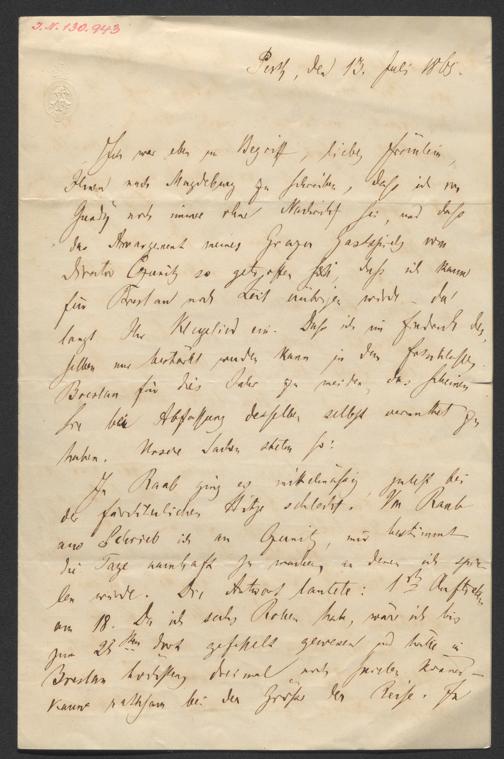 I.N. 130.943
Pesth, den 13. Juli 1865.
Ich war eben im Begriff, liebes Fräulein,
Ihnen nach Magdeburg zu schreiben, daß ich von
noch immer ohne Nachricht sei, und daß
das Arrangement meines Grazer Gastspiels von
Director Czernitz so getroffen sei, daß ich kaum
für Breslau noch Zeit übrig würde – da
langt Ihr Klagelied ein. Daß ich im Eindruck des-
selben nur bestärkt werden kann in dem Entschlusse,
Breslau für dies Jahr zu meiden, das scheinen
Sie bei Abfassung desselben selbst vermuthet zu
haben. Unsere Sachen stehen so:
In Raab ging es mittelmäßig, zuletzt bei
der fürchterlichen Hitze schlecht. Von Raab
aus schrieb ich an Czernitz, mir bestimmt
die Tage namhaft zu machen, an denen ich spie-
len würde. Die Antwort lautete: 1stes Auftreten
am 18. Da ich sechs Rollen habe, wäre ich bis
zum 28sten dort gefesselt gewesen und hätte in
Breslau höchstens dreimal noch spielen können –
kaum rathsam bei der Größe der Reise. In